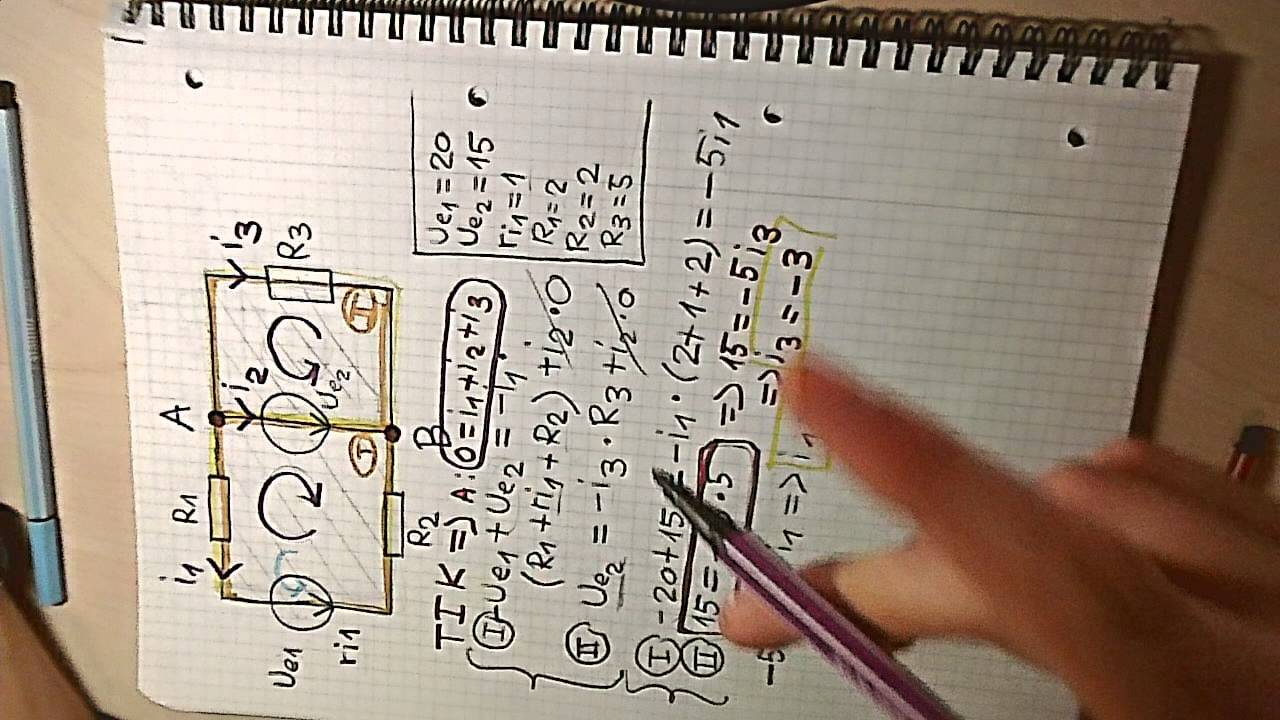 A
i1
R1
i2
i3
Ue1
ri1
Ue2
R3
I
II
R2
B
Ue1 = 20
Ue2 = 15
ri1 = 1
R1 = 2
R2 = 2
R3 = 5
TIK => A: 0 = i1 + i2 + i3
I -Ue1 + Ue2 = -i1 ·
(R1 + ri1 + R2) + i2 · 0
II Ue2 = -i3 · R3 + i2 · 0
I -20 + 15 = -i1 · (2+1+2) = -5i1
II 15 = · 5 => 15 = -5i3
=> i3 = -3
-5 i1 => i1